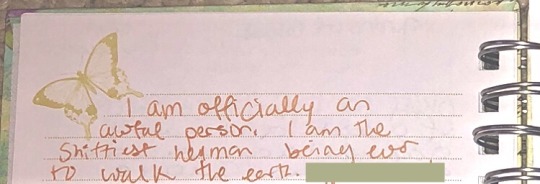 I am officially an
awful person. I am the
shittiest human being ever
to walk the earth.